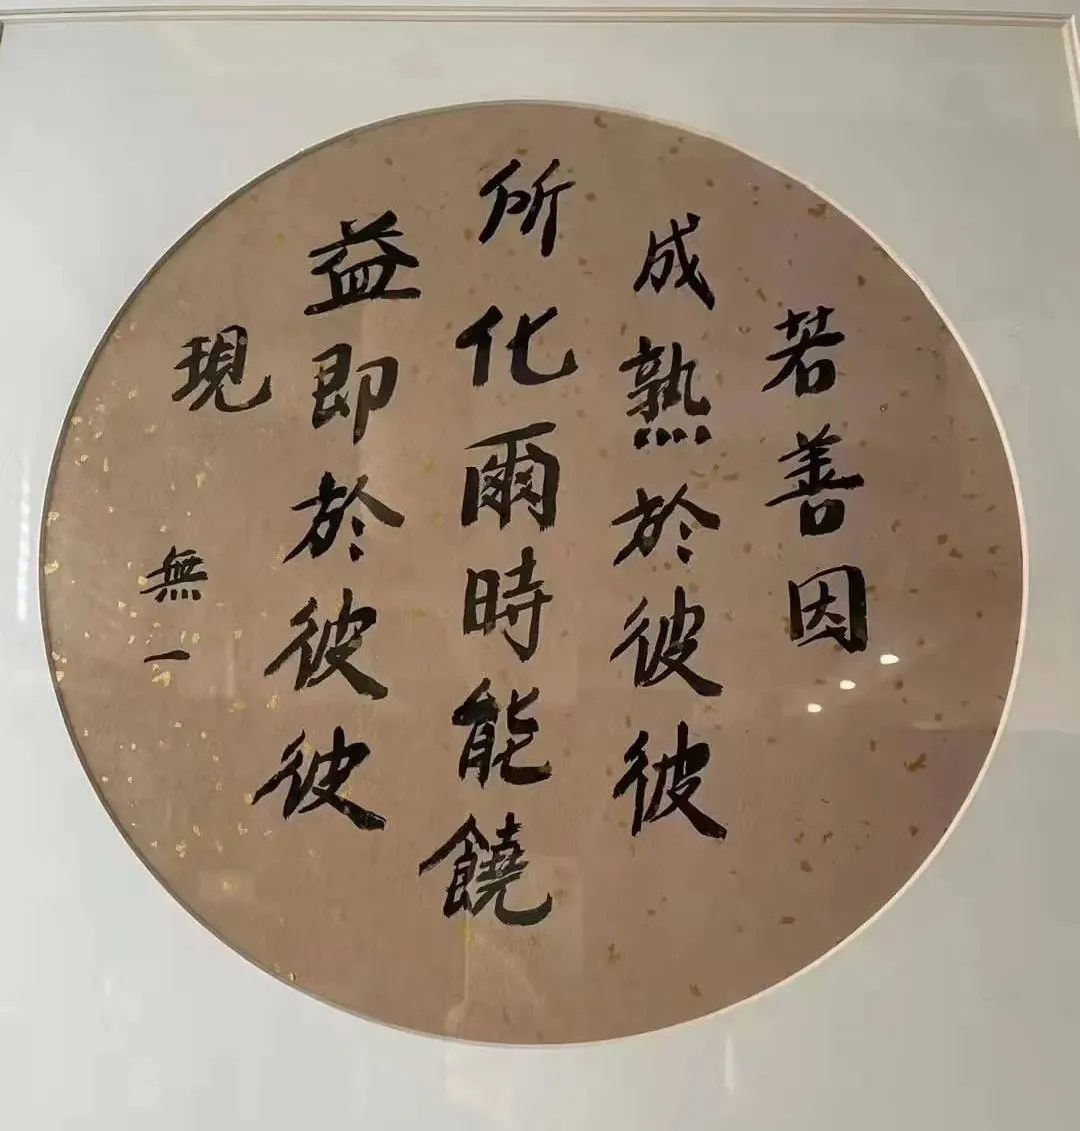 若善因
成熟於彼彼
所化爾時能饒
益即於彼彼
現
無一